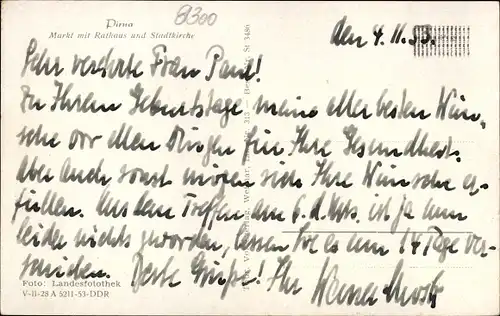 Pirna
Markt mit Rathaus und Stadtkirche
8300
den 4. 11. 53.
Sehr verehrte Frau Paul!
Zu Ihrem Geburtstage meine aller besten Wün-
sche vor allen Dingen für Ihre Gesundheit.
Aber auch sonst mögen sich Ihre Wünsche er-
füllen. Aus dem Treffen am 6. d. Mts. ist ja nun
leider nichts geworden, lassen Sie es um 14 Tage ver-
schieben. Beste Grüße! Ihr Werner
Foto: Landesfotothek
V-11-28 A 5211-53-DDR